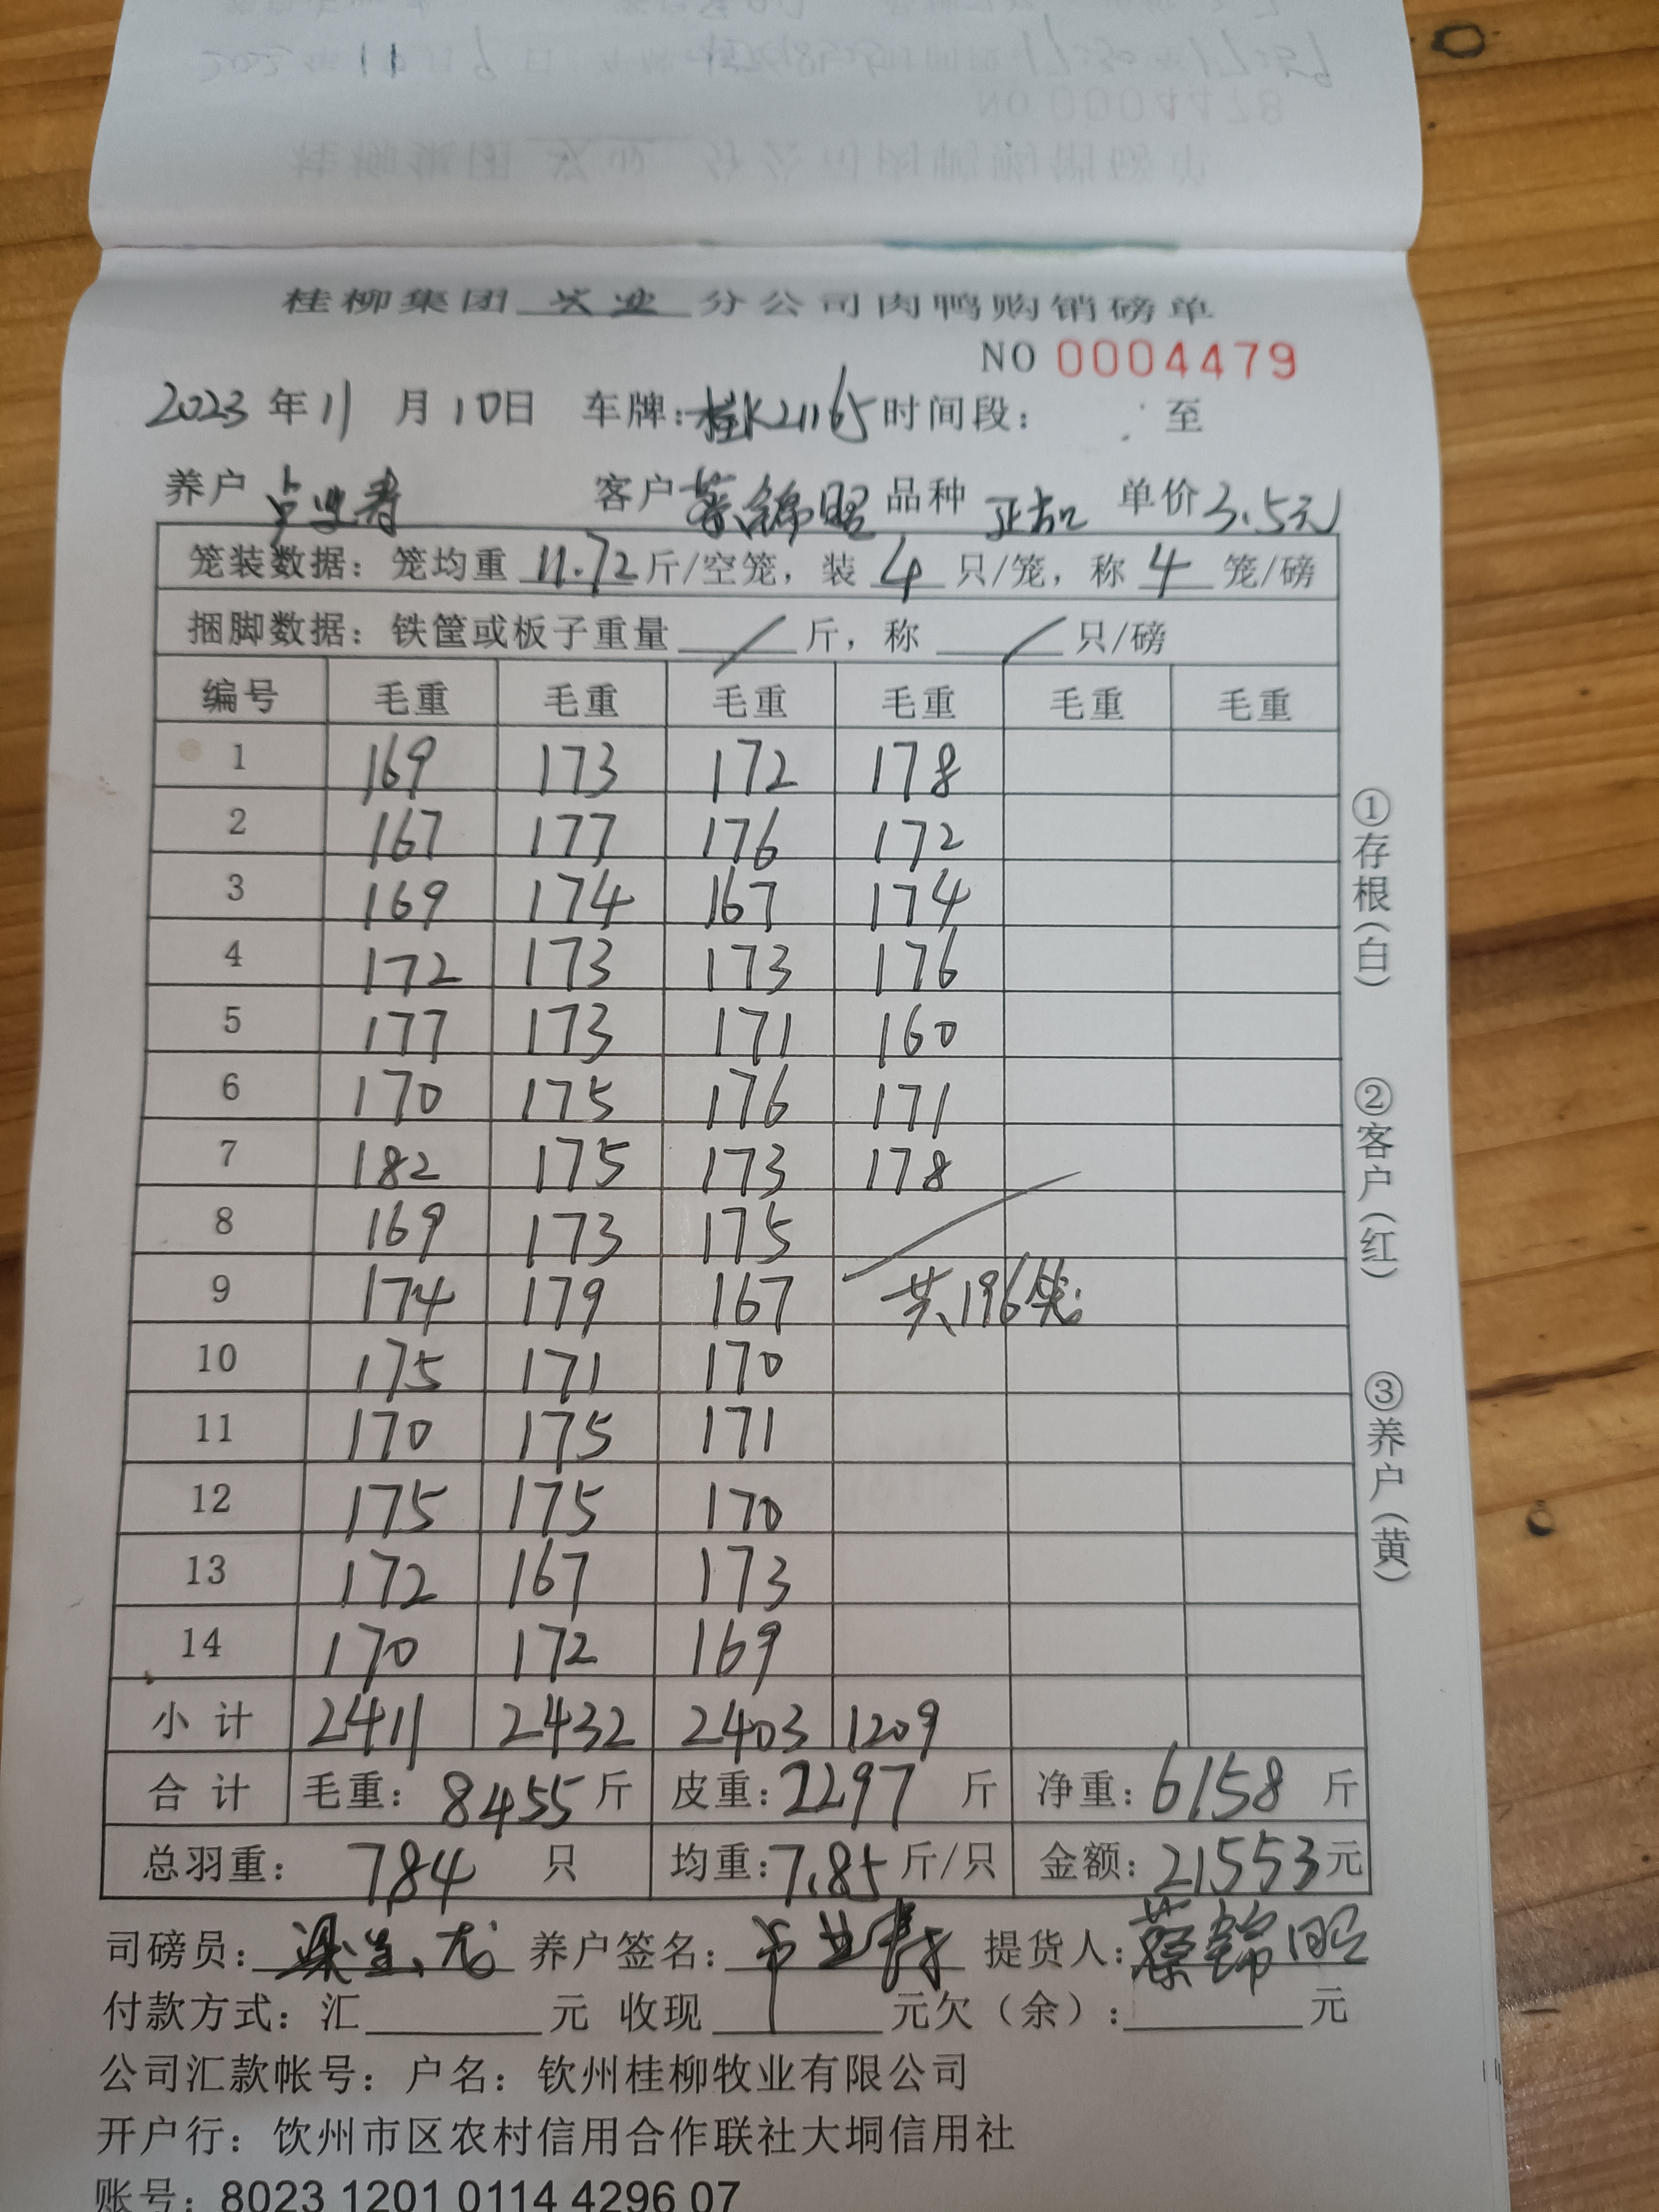 NO 0004478
桂柳集团 兴业 分公司肉鸭购销磅单
NO 0004479
2023 年 11 月 10 日 车牌: 桂K21165 时间段: 至
养户 卢业寿 客户 蔡锦昭 品种 单价 3.5元
笼装数据: 笼均重 11.72 斤/空笼, 装 4 只/笼, 称 4 笼/磅
捆脚数据: 铁筐或板子重量 / 斤, 称 / 只/磅
编号 毛重 毛重 毛重 毛重 毛重 毛重
1 169 173 172 178
2 167 177 176 172
3 169 174 167 174
4 172 173 173 176
5 177 173 171 160
6 170 175 176 171
7 182 175 173 178
8 169 173 175
9 174 179 167 共196笼
10 175 171 170
11 170 175 171
12 175 175 170
13 172 167 173
14 170 172 169
小计 2411 2432 2403 1209
合计 毛重: 8455 斤 皮重: 2297 斤 净重: 6158 斤
总羽重: 784 只 均重: 7.85 斤/只 金额: 21553 元
司磅员: 养户签名: 卢业寿 提货人: 蔡锦昭
付款方式: 汇 元 收现 元欠(余): 元
公司汇款帐号: 户名: 钦州桂柳牧业有限公司
开户行: 钦州市区农村信用合作联社大垌信用社
账号: 8023 1201 0114 4296 07
①存根(白)
②客户(红)
③养户(黄)